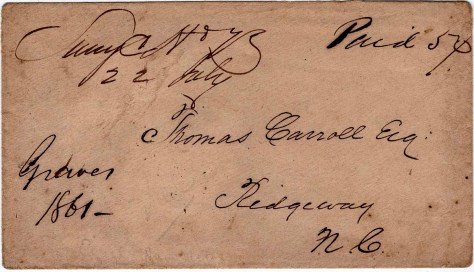 Paid 5¢
22 July
Thomas Carroll Esq.
Graves
1861-
Ridgeway
N.C.